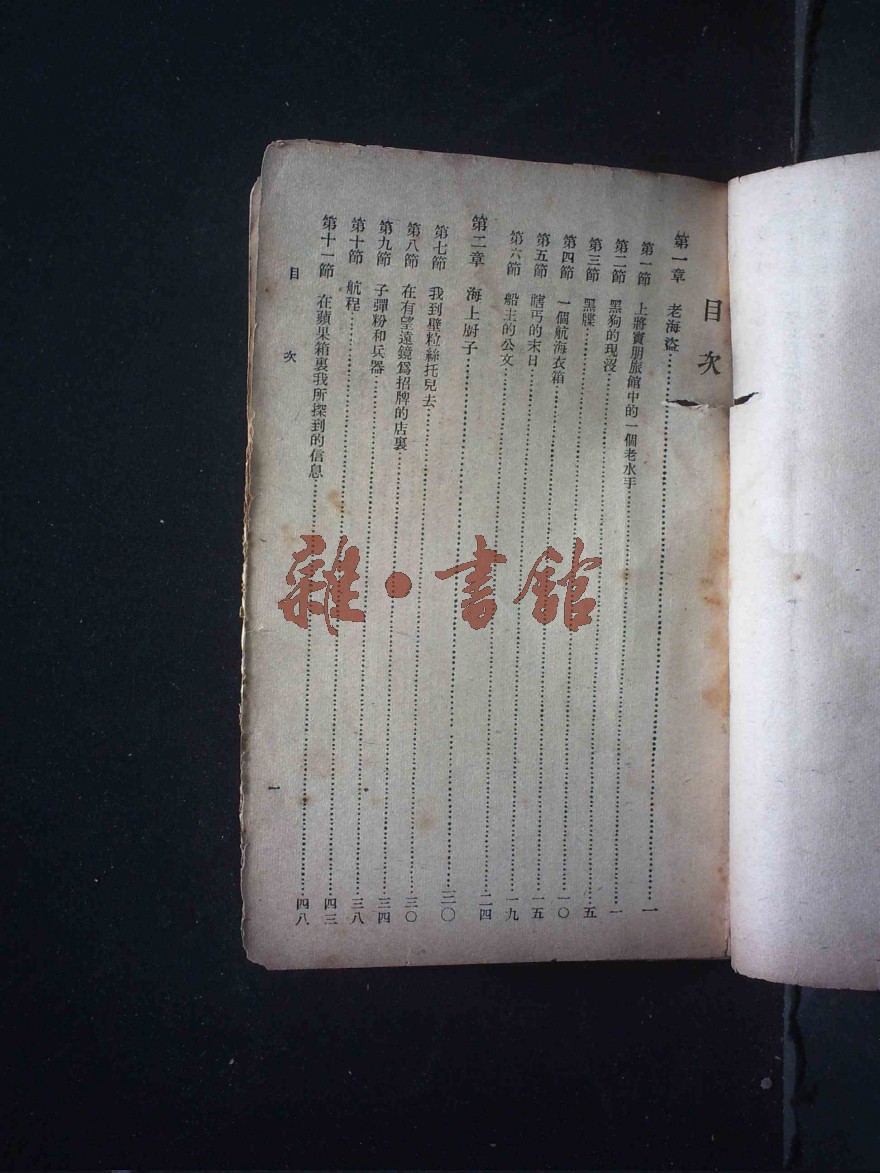 目次
第一章 老海盜……一
第一節 上將賓朋旅館中的一個老水手……一
第二節 黑狗的現沒……五
第三節 黑牒……一〇
第四節 一個航海衣箱……一五
第五節 瞎丐的末日……一九
第六節 船主的公文……二四
第二章 海上廚子……三〇
第七節 我到壁粒絲托兒去……三〇
第八節 在有望遠鏡爲招牌的店裏……三四
第九節 子彈粉和兵器……三八
第十節 航程……四三
第十一節 在蘋果箱裏我所探到的信息……四八
目次 一
雜·書館